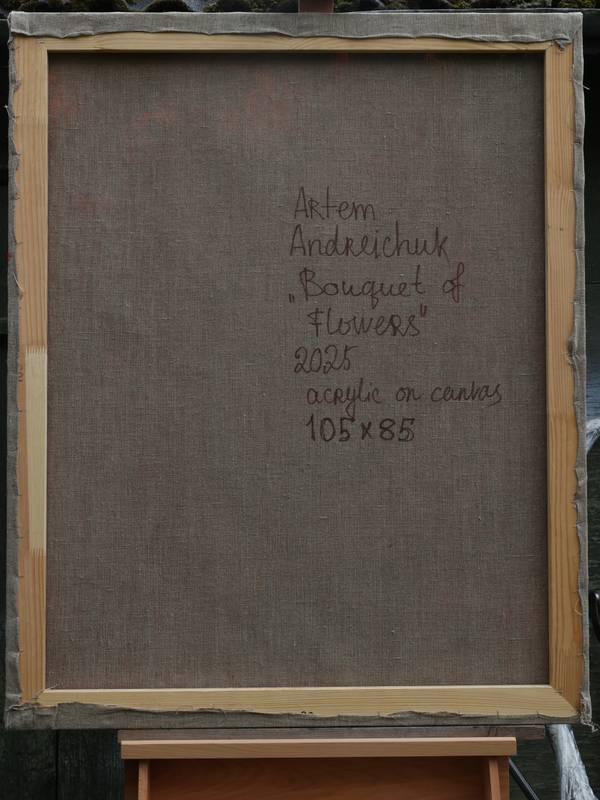 Artem
Andreichuk
„Bouquet of
Flowers"
2025
acrylic on canvas
105x85